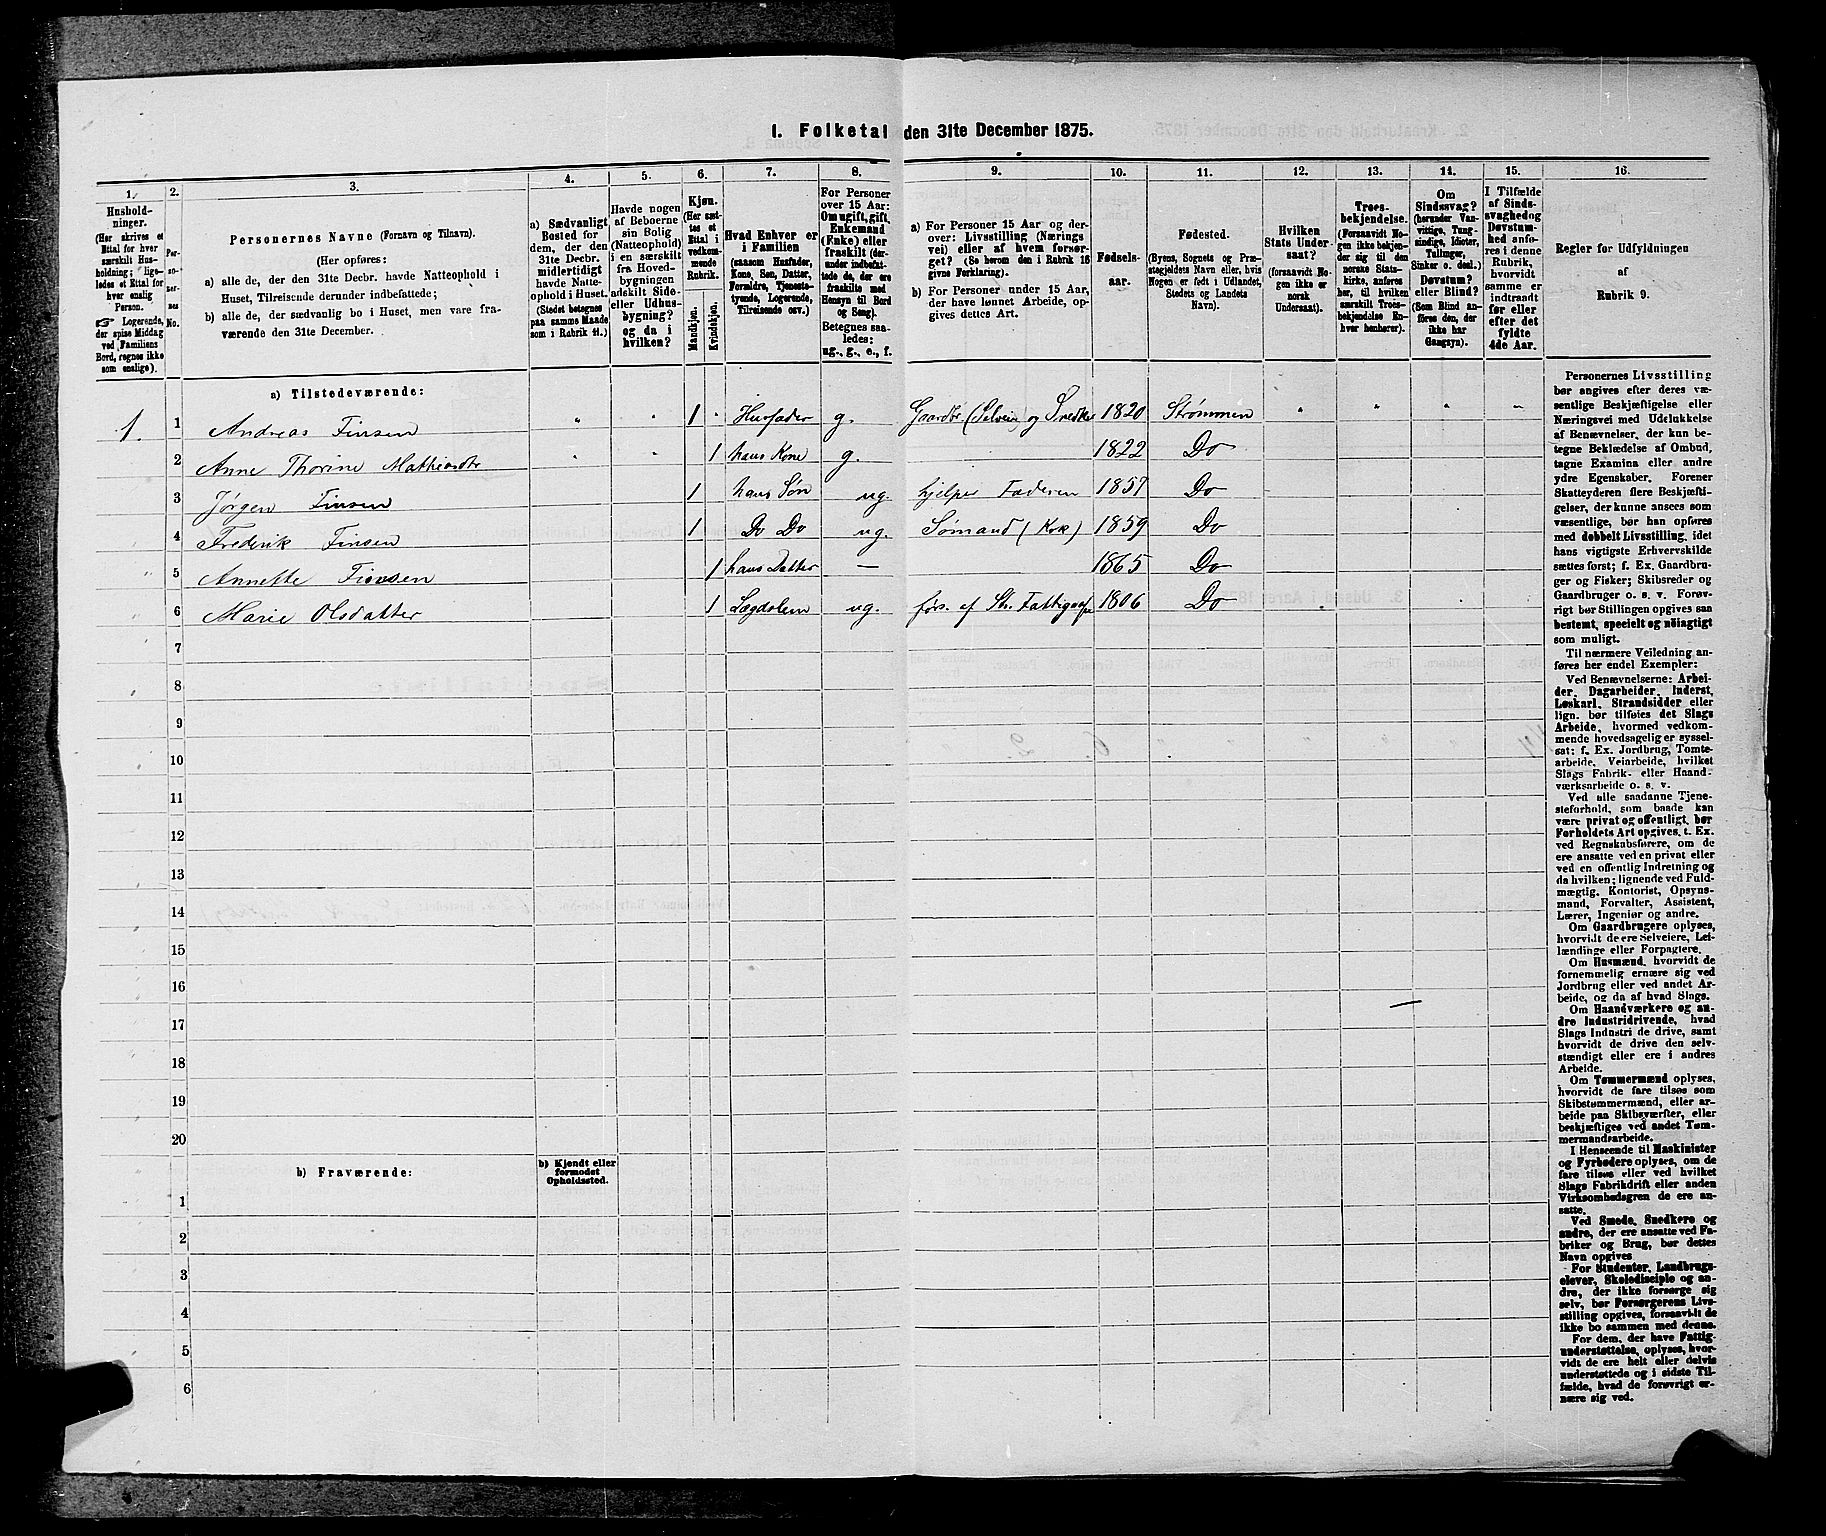 I. Folketal den 31te December 1875.
1. 2. 3. 4. 5. 6. 7. 8. 9. 10. 11. 12. 13. 14. 15. 16.
Husholdninger.
(Her skrives et Ettal for hver særskilt Husholdning; ligeledes et Ettal for hver enslig Person.
☞ Logerende, der spise Middag ved Familiens Bord, regnes ikke som enslige).
Personernes No.
Personernes Navne (Fornavn og Tilnavn).
(Her opføres:
a) alle de, der den 31te Decbr. havde Natteophold i Huset, Tilreisende derunder indbefattede;
b) alle de, der sædvanlig bo i Huset, men vare fraværende den 31te December.
a) Sædvanligt Bosted for dem, der den 31te Decbr. midlertidigt havde Natteophold i Huset. (Stedet betegnes paa samme Maade som i Rubrik 11.)
Havde nogen af Beboerne sin Bolig (Natteophold) i en særskilt fra Hovedbygningen adskilt Side- eller Udhusbygning? og da i hvilken?
Kjøn. (Her sættes et Ettal i vedkommende Rubrik.
Mandkjøn. Kvindekjøn.
Hvad Enhver er i Familien (saasom Husfader, Kone, Søn, Datter, Forældre, Tjenestetyende, Logerende, Tilreisende osv.)
For Personer over 15 Aar: Om ugift, gift, Enkemand (Enke) eller fraskilt (derunder indbefattede de, der ere fraskilte med Hensyn til Bord og Seng). Betegnes saaledes: ug., g., e., f.
a) For Personer 15 Aar og derover: Livsstilling (Næringsvei) eller af hvem forsørget? (Se herom den i Rubrik 16 givne Forklaring).
b) For Personer under 15 Aar, der have lønnet Arbeide, opgives dettes Art.
Fødselsaar.
Fødested. (Byens, Sognets og Præstegjeldets Navn eller, hvis Nogen er født i Udlandet, Stedets og Landets Navn).
Hvilken Stats Undersaat? (forsaavidt Nogen ikke er norsk Undersaat).
Troesbekjendelse. (Forsaavidt Nogen ikke bekjender sig til den norske Statskirke, anføres her, til hvilken særskilt Troesbekjendelse Enhver henhører).
Om Sindssvag? (herunder Vanvittige, Tungsindige, Idioter, Tullinger, Sinker o. desl.) Døvstum? eller Blind? (Som Blind anføres den, der ikke har Gangsyn).
I Tilfælde af Sindssvaghed og Døvstumhed anføres i denne Rubrik, hvorvidt samme er indtraadt før eller efter det fyldte 4de Aar.
Regler før Udfyldningen
af
Rubrik 9.
a) Tilstedeværende:
1. 1 Andreas Finsen " " 1 " Husfader g. Gaardbr (Selveier) og Snedker 1820 Strømmen " " " "
2 Anne Thorine Mathiasdtr " " 1 hans Kone g. 1822 Do
3 Jørgen Finsen 1 hans Søn ug. hjelper Faderen 1857 Do
4 Frederik Finsen 1 Do Do ug. Sømand (Kok) 1859 Do
5 Annette Finsen 1 hans Datter — 1865 Do
6 Marie Olsdatter 1 Lægdslem ug. fors. af Str. 1806 Do
7
8
9
10
11
12
13
14
15
16
17
18
19
20
b) Fraværende:
b) Kjendt eller formodet Opholdssted.
1
2
3
4
5
6
Personernes Livsstilling
bør angives efter deres væ-
sentlige Beskjæftigelse eller
Næringsvei med Udelukkelse
af Benævnelser, der kun be-
tegne Beklædelse af Ombud,
tagne Examina eller andre
ydre Egenskaber. Forener
Skatteyderen flere Beskjæfti-
gelser, der kunne ansees som
væsentlige, bør han opføres
med dobbelt Livsstilling, idet
hans vigtigste Erhvervskilde
sættes først; f. Ex. Gaardbru-
ger og Fisker; Skibsreder og
Gaardbruger o. s. v. Forøv-
rigt bør Stillingen opgives saa
bestemt, specielt og nøiagtigt
som muligt.
Til nærmere Veiledning an-
føres her endel Exempler:
Ved Benævnelserne: Arbei-
der, Dagarbeider, Inderst,
Løskarl, Strandsidder eller
lign. bør tilføies det Slags
Arbeide, hvormed vedkom-
mende hovedsagelig er syssel-
sat; f. Ex. Jordbrug, Tomte-
arbeide, Veiarbeide, hvilket
Slags Fabrik- eller Haand-
værksarbeide o. s. v.
Ved alle saadanne Tjene-
steforhold, som baade kan
være privat og offentligt, bør
Forholdets Art opgives, t. Ex.
ved Regnskabsførere, om de
ere ansatte ved en privat eller
ved en offentlig Indretning og
da hvilken; lignende ved Fuld-
mægtig, Kontorist, Opsyns-
mand, Forvalter, Assistent,
Lærer, Ingeniør og andre.
Om Gaardbrugere oplyses,
hvorvidt de ere Selveiere, Lei-
lændinge eller Forpagtere.
Om Husmænd, hvorvidt de
fornemmelig ernære sig ved
Jordbrug eller ved andet Ar-
beide, og da af hvad Slags.
Om Haandværkere og an-
dre Industridrivende, hvad
Slags Industri de drive, samt
hvorvidt de drive den selv-
stændigt eller ere i andres
Arbeide.
Om Tømmermænd oplyses,
hvorvidt de fare tilsøs som
Skibstømmermænd, eller ar-
beide paa Skibsværfter, eller
beskjæftiges ved andet Tøm-
mermandsarbeide.
I Henseende til Maskinister
og Fyrbødere oplyses, om de
fare tilsøs eller ved hvilket
Slags Fabrikdrift eller anden
Virksomhedsgren de ere an-
satte.
Ved Smede, Snedkere og
andre, der ere ansatte ved Fa-
briker og Brug, bør dettes
Navn opgives
For Studenter, Landbrugs-
elever, Skoledisciple og an-
dre, der ikke forsørge sig
selv, bør Forsørgerens Livs-
stilling opgives, forsaavidt de
ikke bo sammen med denne.
For dem, der have Fattig-
understøttelse, oplyses, hvor-
vidt de ere helt eller delvis
understøttede og i sidste Til-
fælde, hvad de forøvrigt er-
nære sig ved.